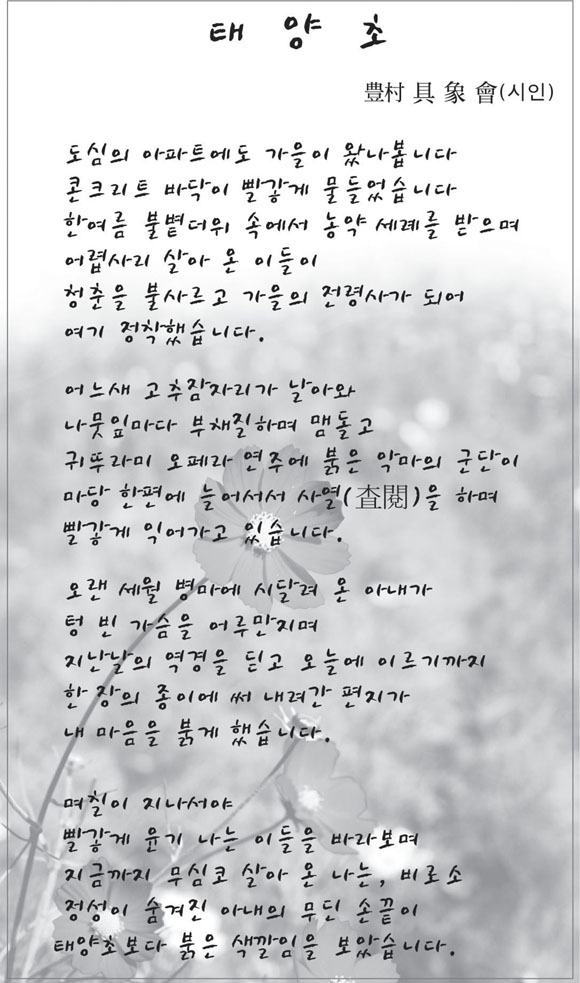 태 양 초
豊村 具 象 會(시인)
도심의 아파트에도 가을이 왔나봅니다
콘크리트 바닥이 빨갛게 물들었습니다
한여름 불볕더위 속에서 농약 세례를 받으며
어렵사리 살아 온 이들이
청춘을 불사르고 가을의 전령사가 되어
여기 정착했습니다.
어느새 고추잠자리가 날아와
나뭇잎마다 부채질하며 맴돌고
귀뚜라미 오페라 연주에 붉은 악마의 군단이
마당 한편에 늘어서서 사열(査閱)을 하며
빨갛게 익어가고 있습니다.
오랜 세월 병마에 시달려 온 아내가
텅 빈 가슴을 어루만지며
지난날의 역경을 딛고 오늘에 이르기까지
한 장의 종이에 써 내려간 편지가
내 마음을 붉게 했습니다.
며칠이 지나서야
빨갛게 윤기 나는 이들을 바라보며
지금까지 무심코 살아 온 나는, 비로소
정성이 숨겨진 아내의 무딘 손끝이
태양초보다 붉은 색깔임을 보았습니다.